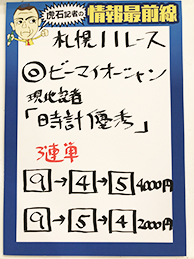 虎石記者の情報最前線
札幌11レース
◎ビーマイオーシャン
現地記者
「時計優秀」
3連単
9→4→5 4000円
9→5→4 2000円